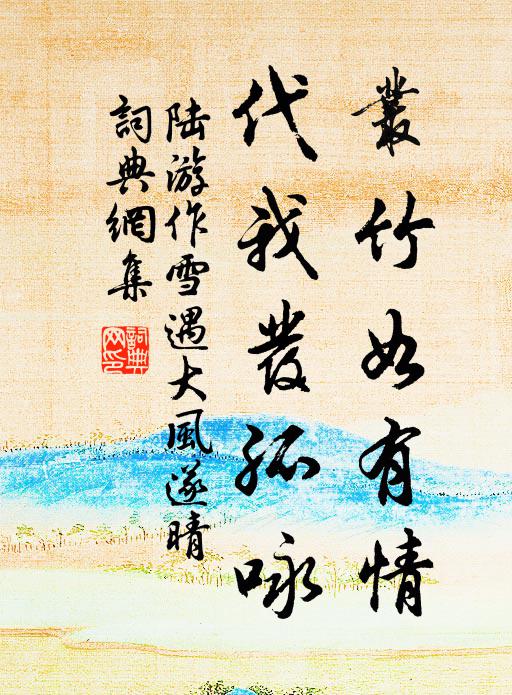 叢竹如有情
代我發孤咏
陸游作雪遇大風遂晴
詞典網集
詞典
网印